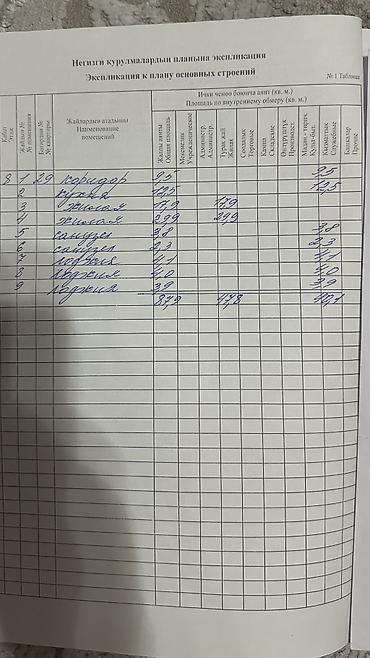 Негизги курулмалардын планына экспликация
Экспликация к плану основных строений
№ 1 Таблица
Ички ченөө боюнча аянт (кв. м.)
Площадь по внутреннему обмеру (кв. м.)
Кабат Этаж
Жайдын № № помещения
Батирдин № № квартиры
Жайлардын аталышы Наименование помещений
Жалпы аянты Общая площадь
Мекемелик Учрежденческие
Администр. Администр.
Турак жай Жилая
Соодалык Торговые
Кампа Складские
Өндүрүштүк Производст.
Мадан.-тирич. Культ-быт.
Кызматтык Служебные
Башкалар Прочие
8 1 29 коридор 9,5 9,5
2 кухня 12,5 12,5
3 жилая 17,9 17,9
4 жилая 29,9 29,9
5 санузел 3,8 3,8
6 санузел 2,3 2,3
7 лоджия 4,1 4,1
8 лоджия 4,0 4,0
9 лоджия 3,9 3,9
87,9 47,8 40,1